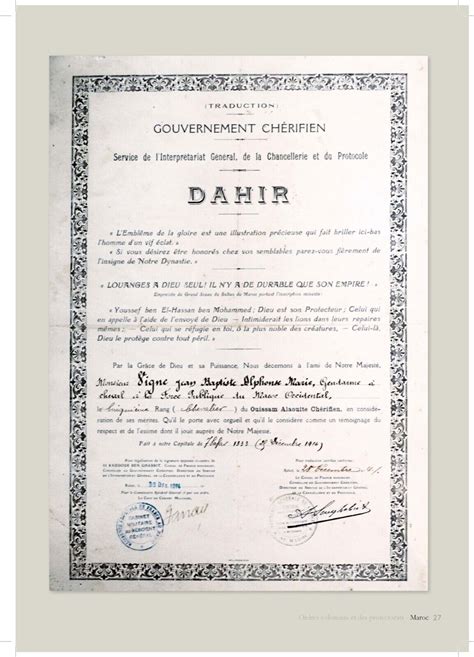 (TRADUCTION)
GOUVERNEMENT CHÉRIFIEN
Service de l'Interprétariat Général, de la Chancellerie et du Protocole
DAHIR
« L'Emblème de la gloire est une illustration précieuse qui fait briller ici-bas
l'homme d'un vif éclat. »
« Si vous désirez être honorés chez vos semblables parez-vous fièrement de
l'insigne de Notre Dynastie. »
« LOUANGES A DIEU SEUL! IL N'Y A DE DURABLE QUE SON EMPIRE! »
Empreinte du Grand Sceau du Sultan du Maroc portant l'inscription suivante:
« Youssef ben El-Hassan ben Mohammed; Dieu est son Protecteur; Celui qui
en appelle à l'aide de l'envoyé de Dieu — Intimiderait les lions dans leurs repaires
mêmes; — Celui qui se réfugie en toi, ô la plus noble des créatures, — Celui-là,
Dieu le protège contre tout péril. »
Par la Grâce de Dieu et sa Puissance, Nous décernons à l'ami de Notre Majesté,
Monsieur Vigne Jean Baptiste Alphonse Marie, Gendarme à
cheval à la Force Publique du Maroc Occidental,
le Cinquième Rang (Chevalier) du Ouissam Alaouite Chérifien, en considé-
ration de ses mérites. Qu'il le porte avec orgueil et qu'il le considère comme un témoignage du
respect et de l'estime dont il jouit auprès de Notre Majesté.
Fait à notre Capitale de 7 Safar 1333 (25 Décembre 1914)
SI KADDOUR BEN GHABRIT
Rabat, le 30 DEC 1914
Rabat, 28 Décembre 1914
CABINET
MILITAIRE
Ordres coloniaux et des protectorats Maroc 27